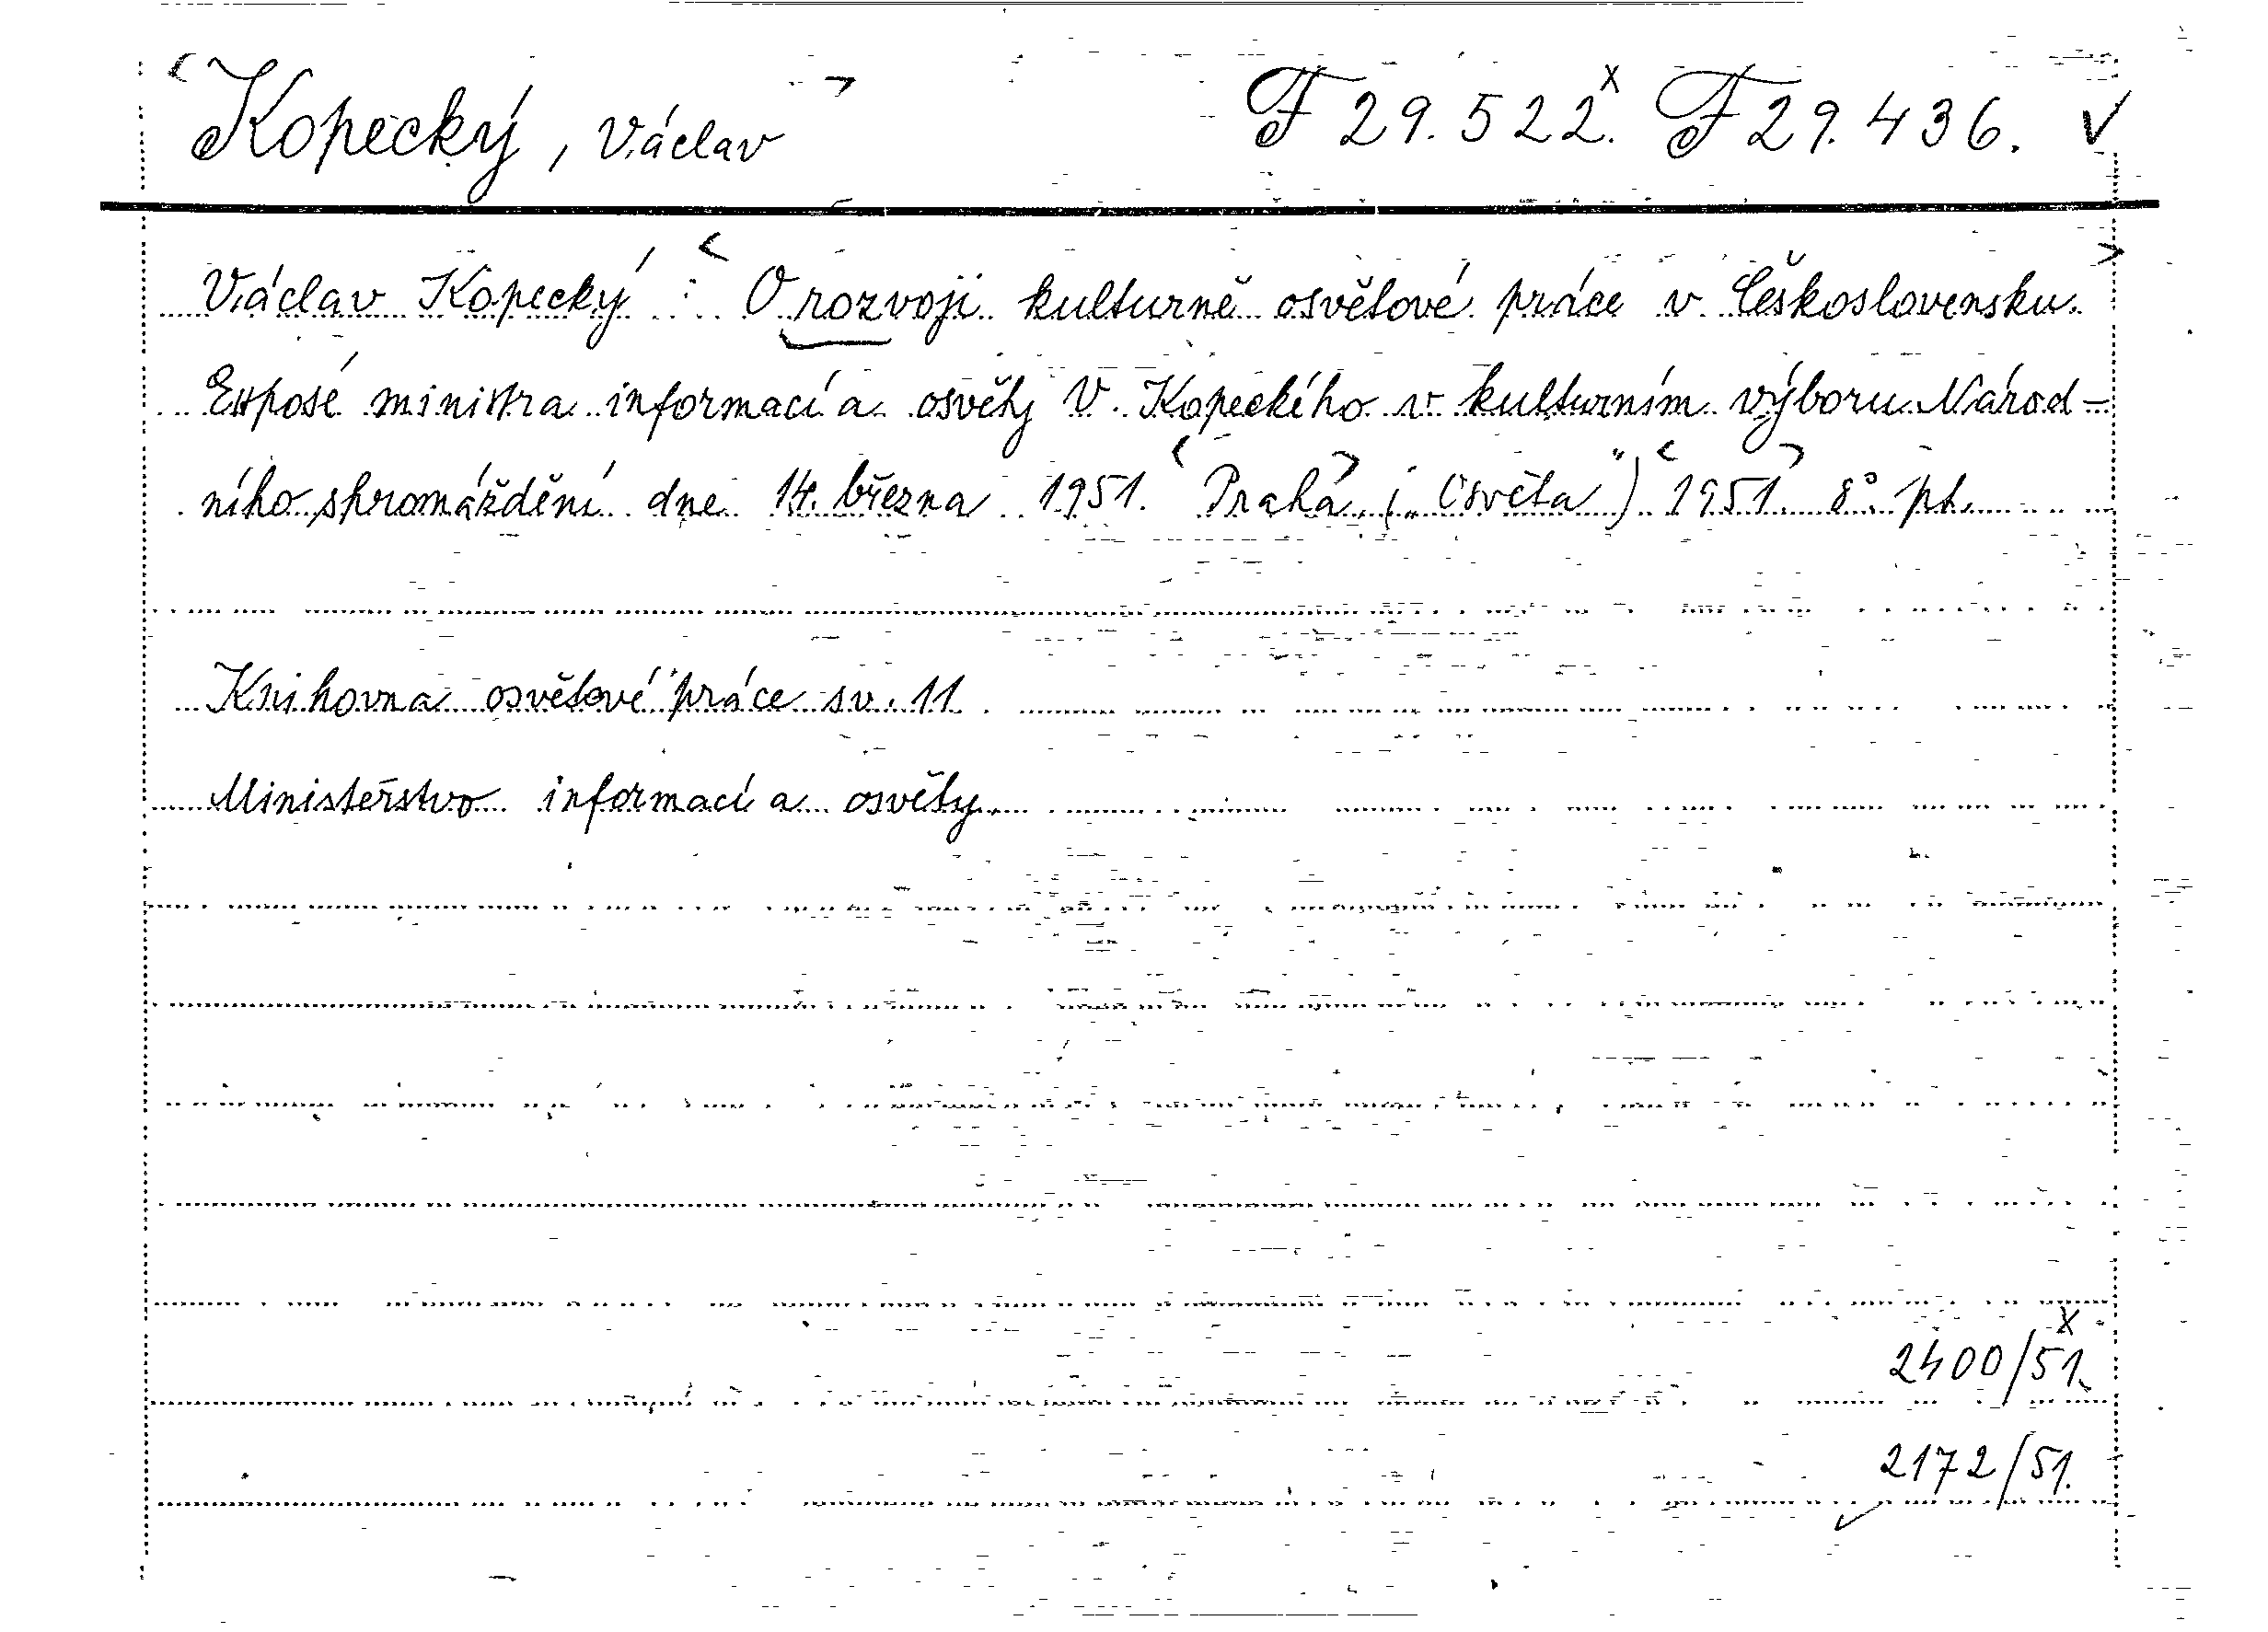 Kopecký, Václav F 29.522.x F 29.436. V
Václav Kopecký: O rozvoji kulturně osvětové práce v Československu.
Exposé ministra informací a osvěty V. Kopeckého v kulturním výboru Národ-
ního shromáždění dne 14. března 1951. Praha, („Osvěta") 1951. 8°. pt.
Knihovna osvětové práce sv. 11.
Ministerstvo informací a osvěty.
2400/51.x
2172/51.